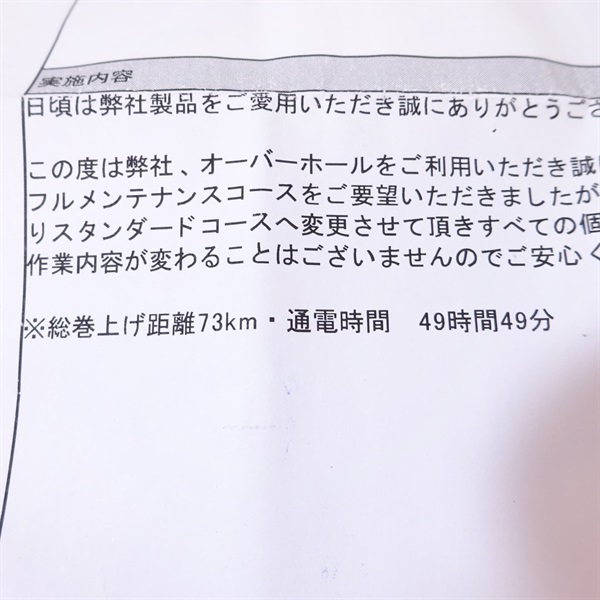 実施内容
日頃は弊社製品をご愛用いただき誠にありがとうござ
この度は弊社、オーバーホールをご利用いただき誠に
フルメンテナンスコースをご要望いただきましたが
りスタンダードコースへ変更させて頂きすべての個
作業内容が変わることはございませんのでご安心く
※総巻上げ距離73km・通電時間　49時間49分